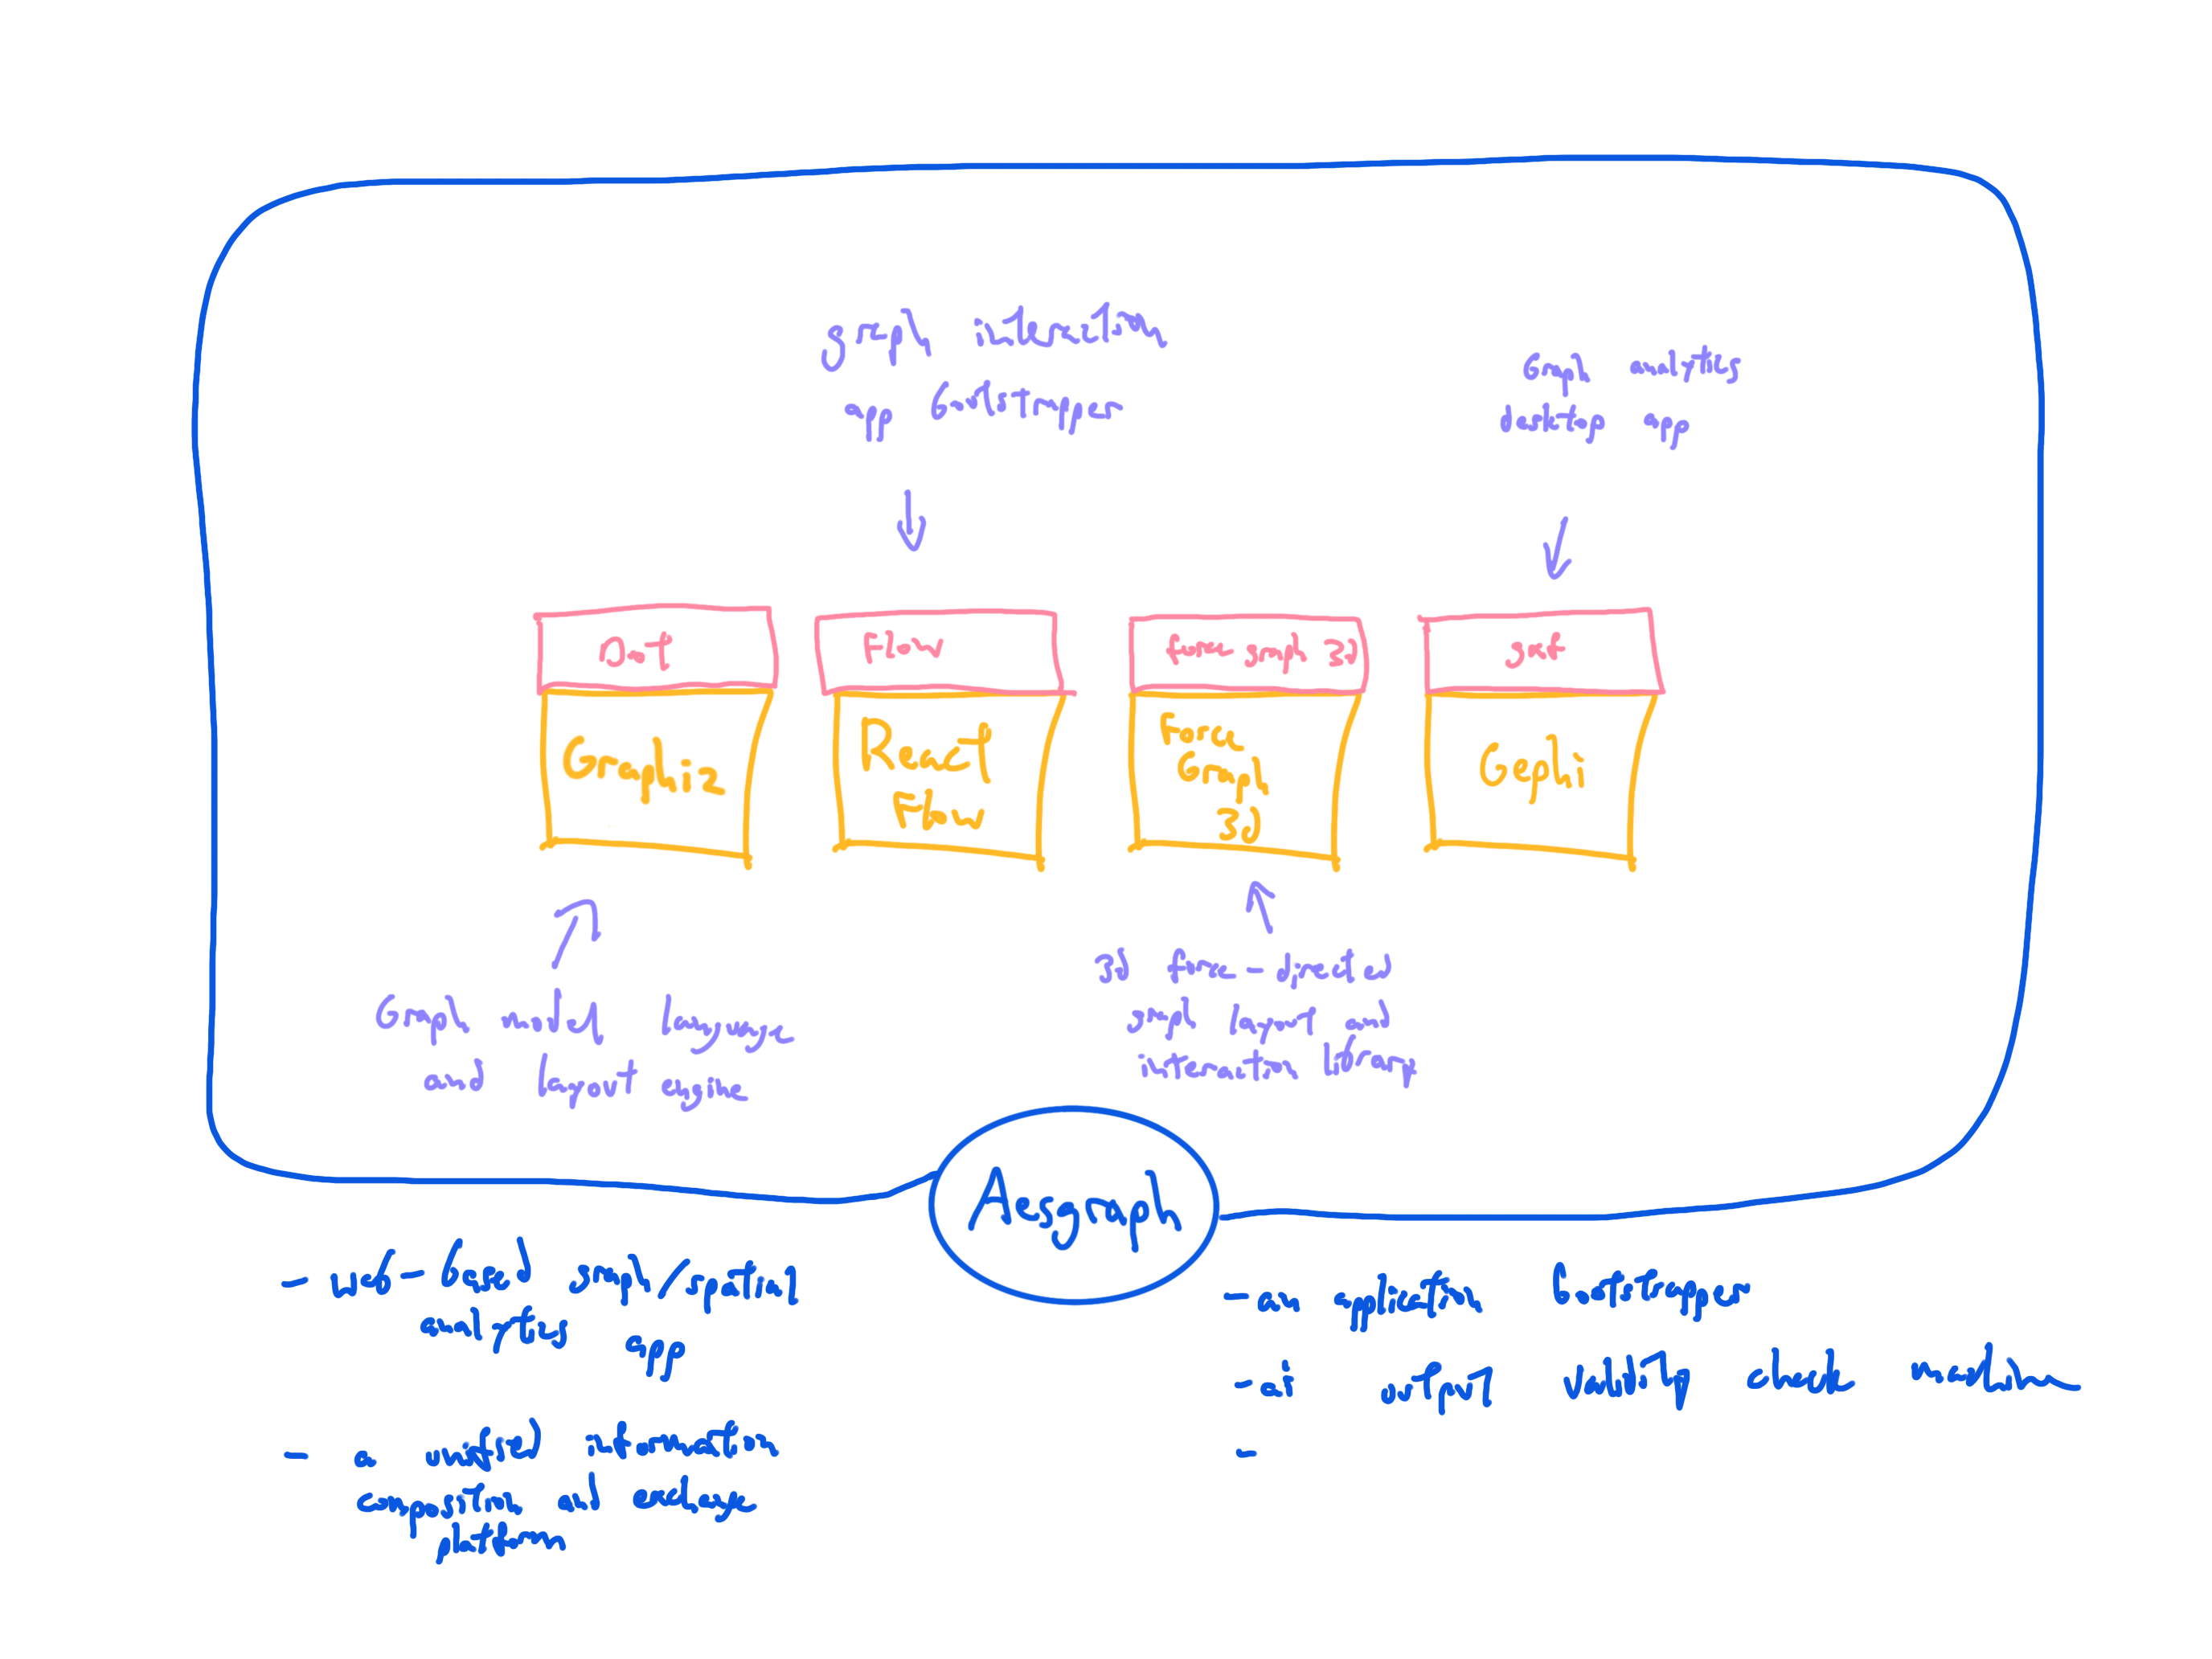 graph interaction
app bootstrapper
Graph analytics
desktop app
Dot
Flow
force graph 3D
gexf
Graphiz
React
Flow
Force
Graph
3D
Gephi
Graph model language
and layout engine
3D force-directed
graph layout and
interaction library
Aesgraph
- web-based graph/spatial
analytics app
- a unified information
composition and exchange
platform
- an application bootstrapper
- ai output validity check medium
-